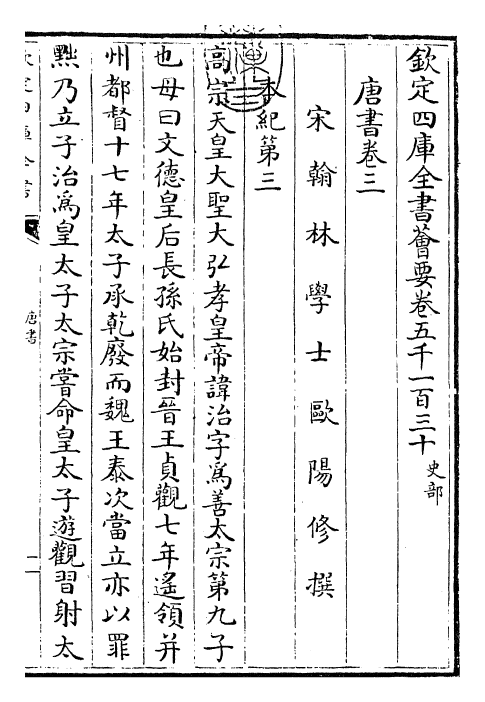 欽定四庫全書薈要卷五千一百三十 史部
唐書卷三
宋翰林學士歐陽修撰
本紀第三
高宗天皇大聖大弘孝皇帝諱治字為善太宗第九子
也母曰文德皇后長孫氏始封晉王貞觀七年遙領并
州都督十七年太子承乾廢而魏王泰次當立亦以罪
黜乃立子治為皇太子太宗嘗命皇太子遊觀習射太
欽定四庫全書
唐書
一